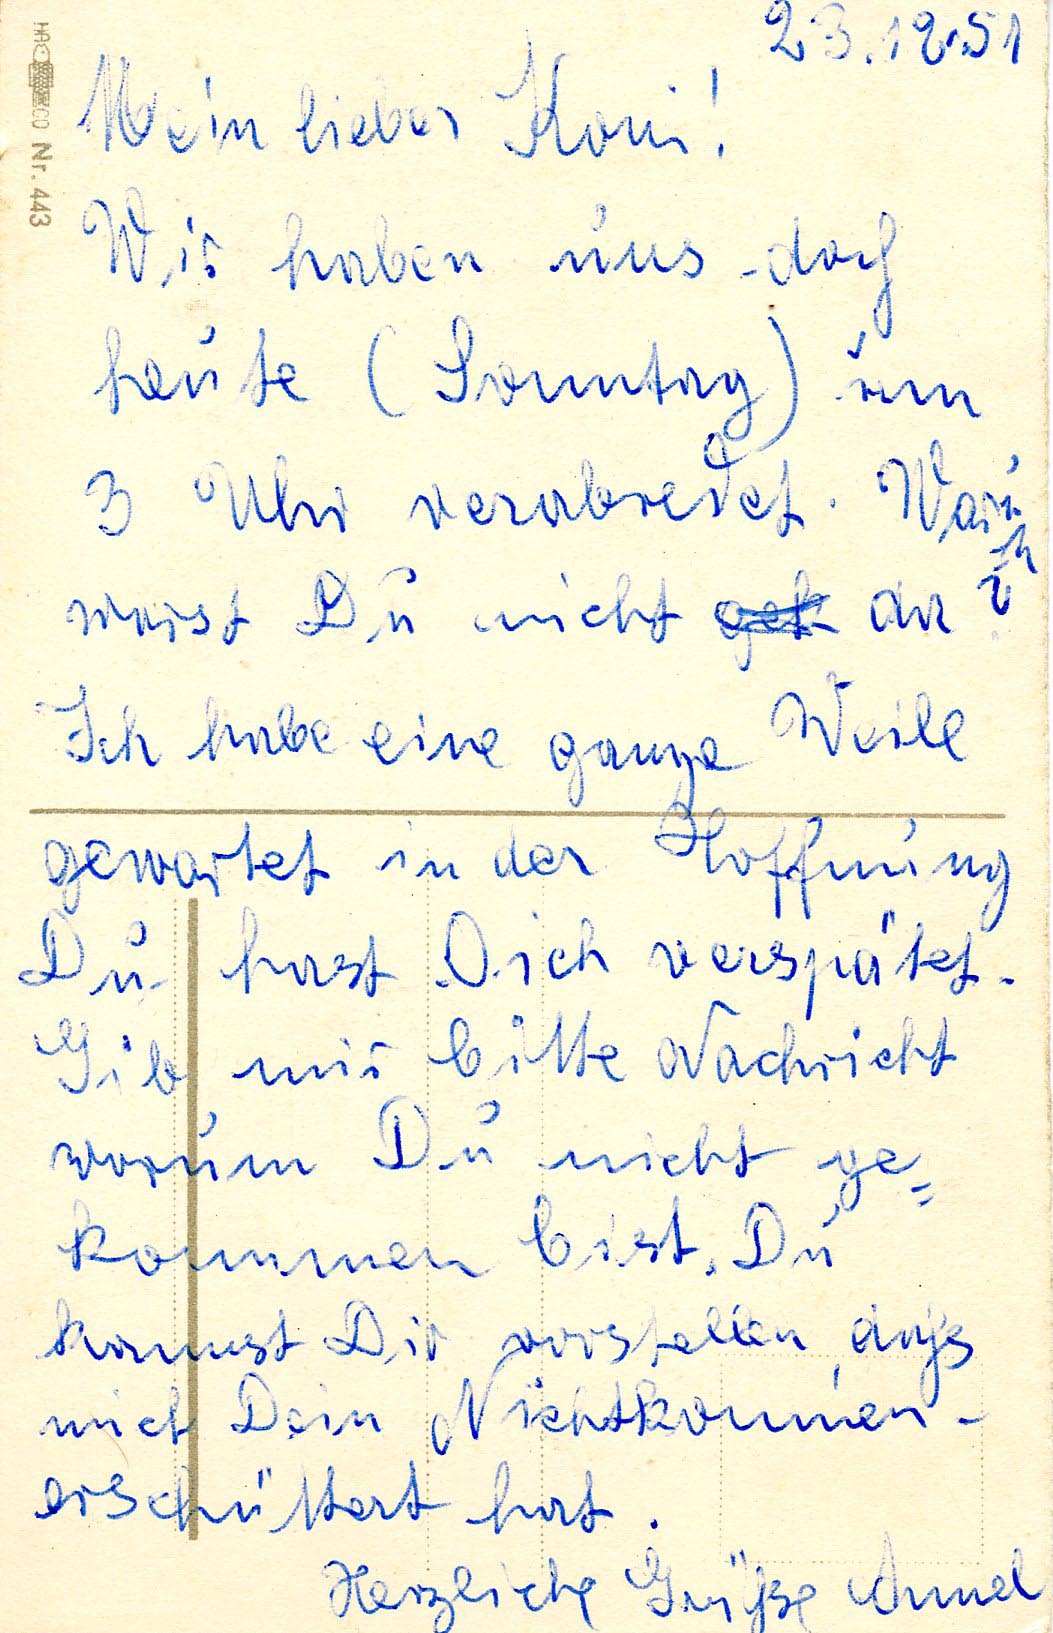 23.12.51
HACO Nr. 443
Mein lieber Koni!
Wir haben uns doch
heute (Sonntag) um
3 Uhr verabredet. Warum
warst Du nicht da?
Ich habe eine ganze Weile
gewartet in der Hoffnung
Du hast Dich verspätet.
Gib mir bitte Nachricht
warum Du nicht ge=
kommen bist. Du
kannst Dir vorstellen, dass
mich Dein Nichtkommen
erschüttert hat.
Herzliche Grüße